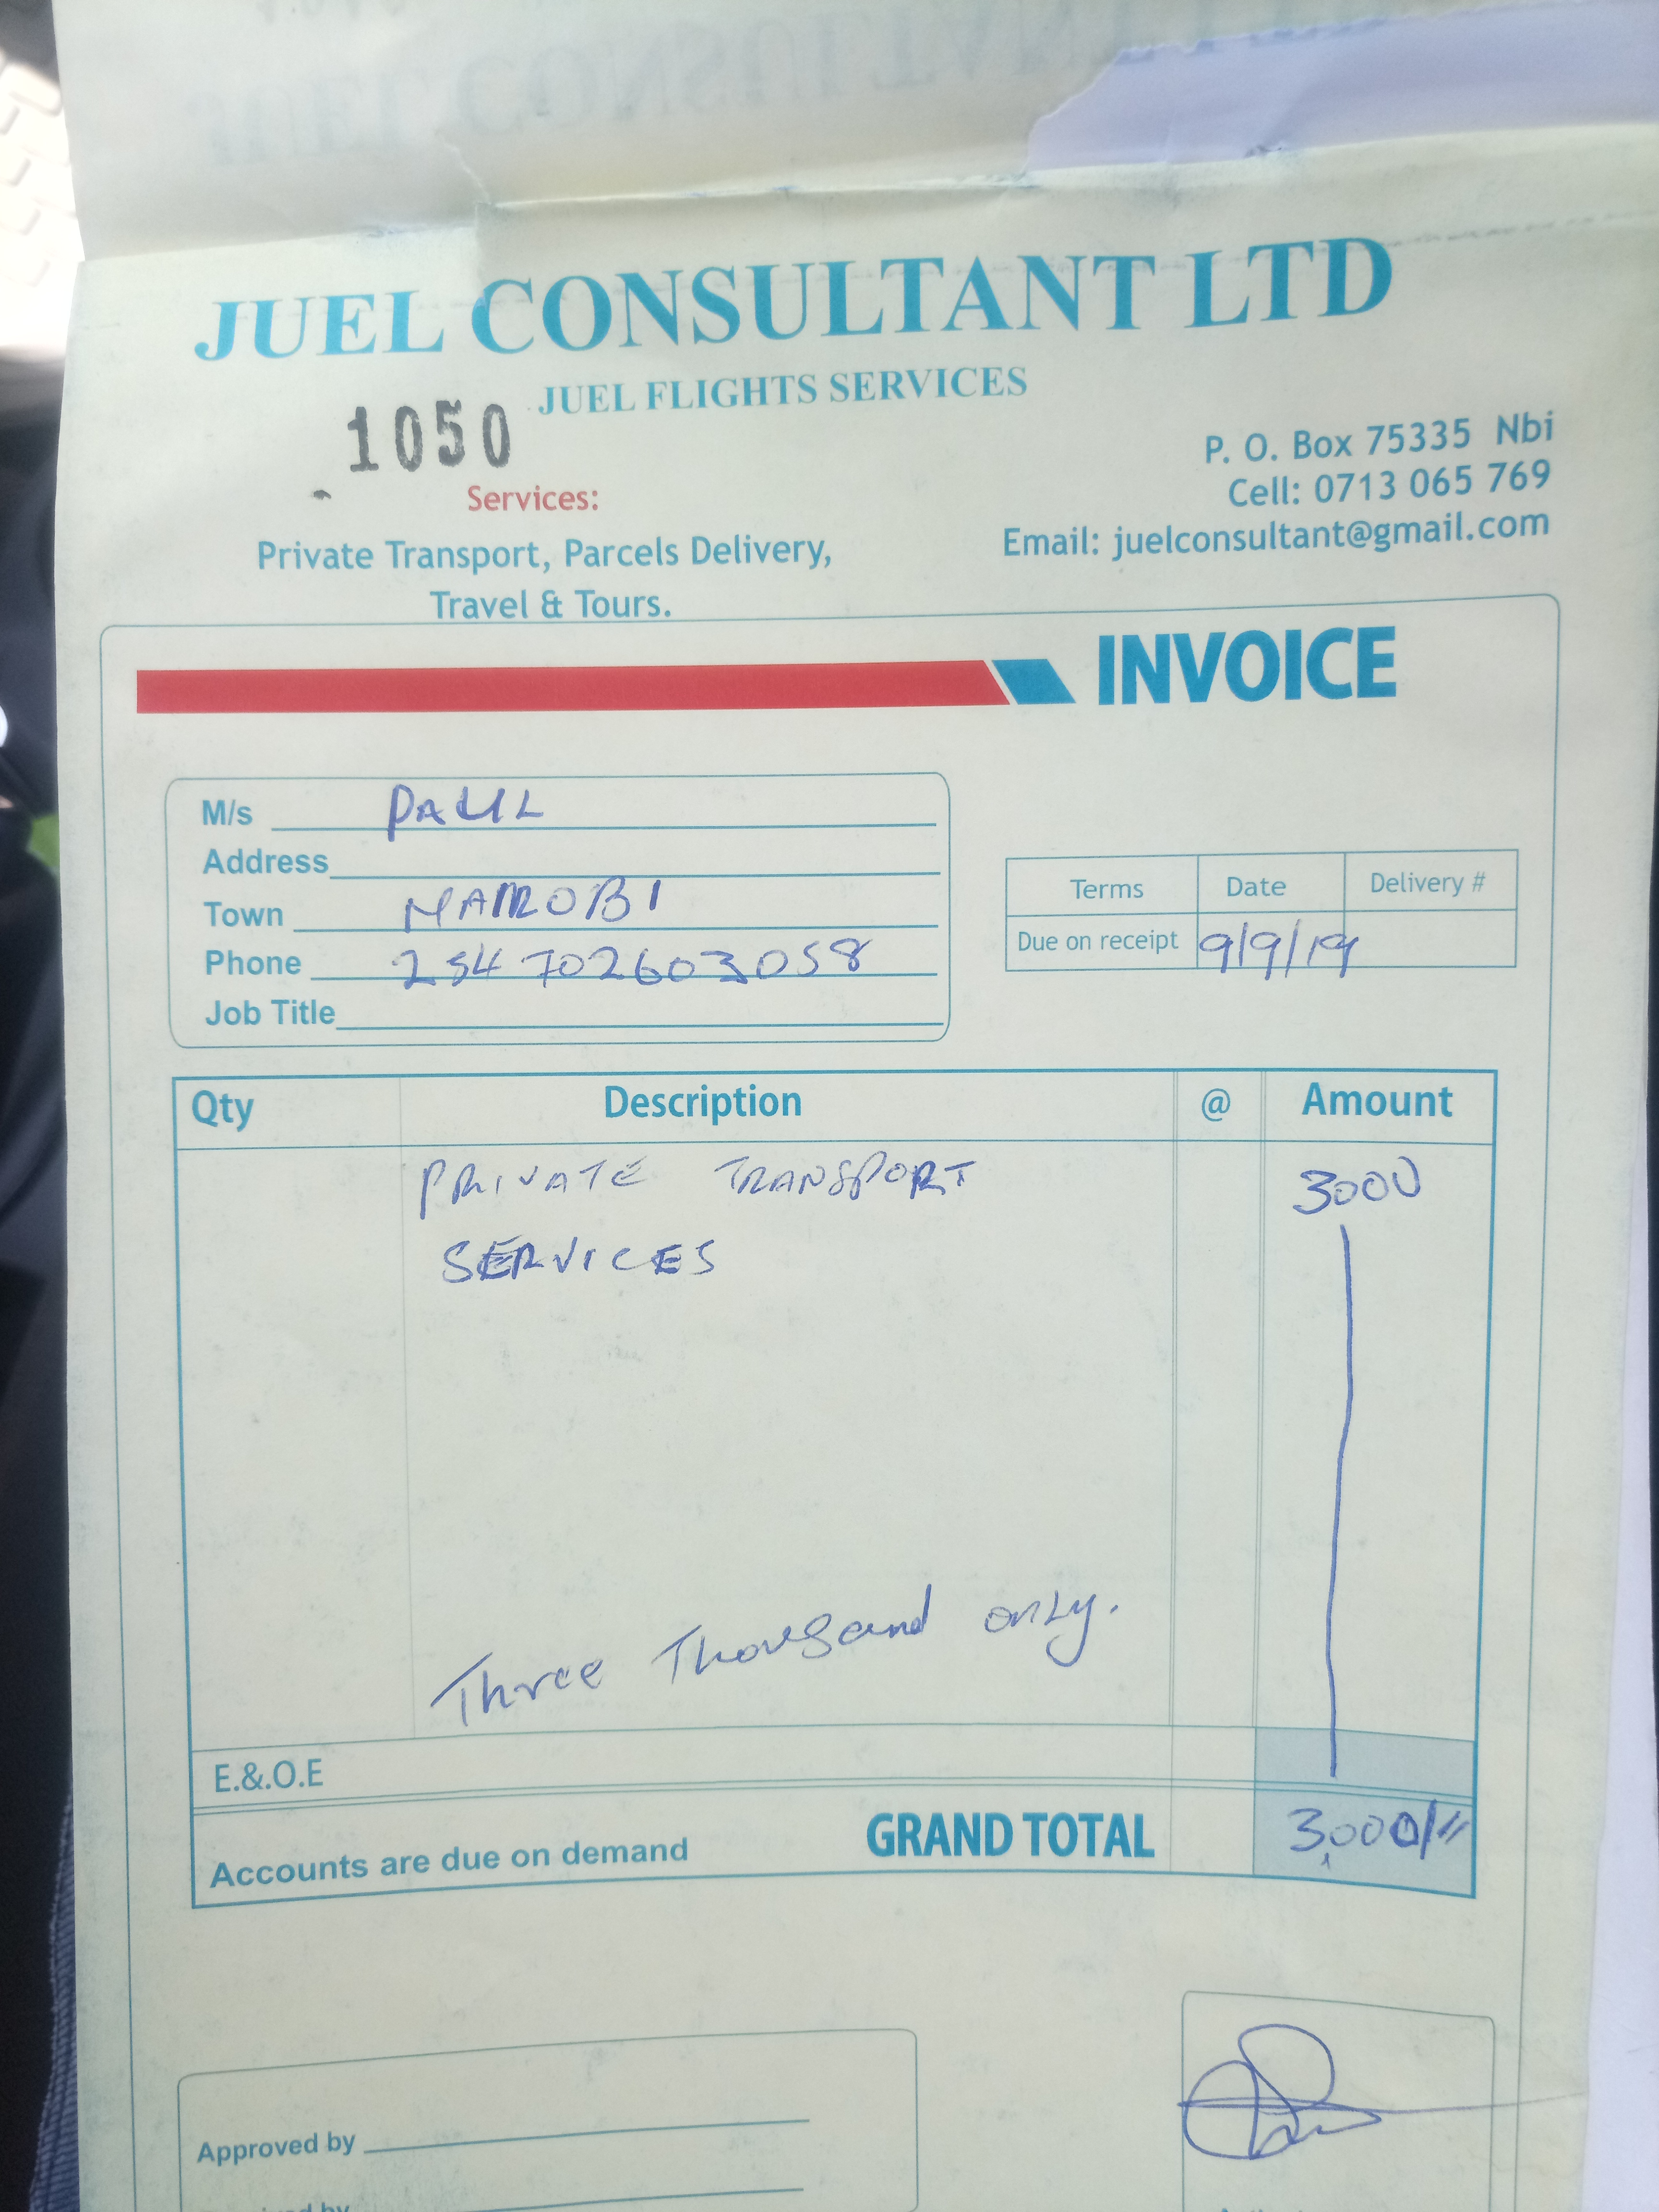 JUEL CONSULTANT LTD
JUEL CONSULTANT LTD
JUEL FLIGHTS SERVICES
1050
Services:
Private Transport, Parcels Delivery,
Travel & Tours.
P. O. Box 75335 Nbi
Cell: 0713 065 769
Email: juelconsultant@gmail.com
INVOICE
M/s PAUL
Address
Town NAIROBI
Phone 254702603058
Job Title
Terms Date Delivery #
Due on receipt 9/9/19
Qty Description @ Amount
PRIVATE TRANSPORT 3000
SERVICES
Three Thousand only.
E.&.O.E
Accounts are due on demand GRAND TOTAL 3,000/=
Approved by